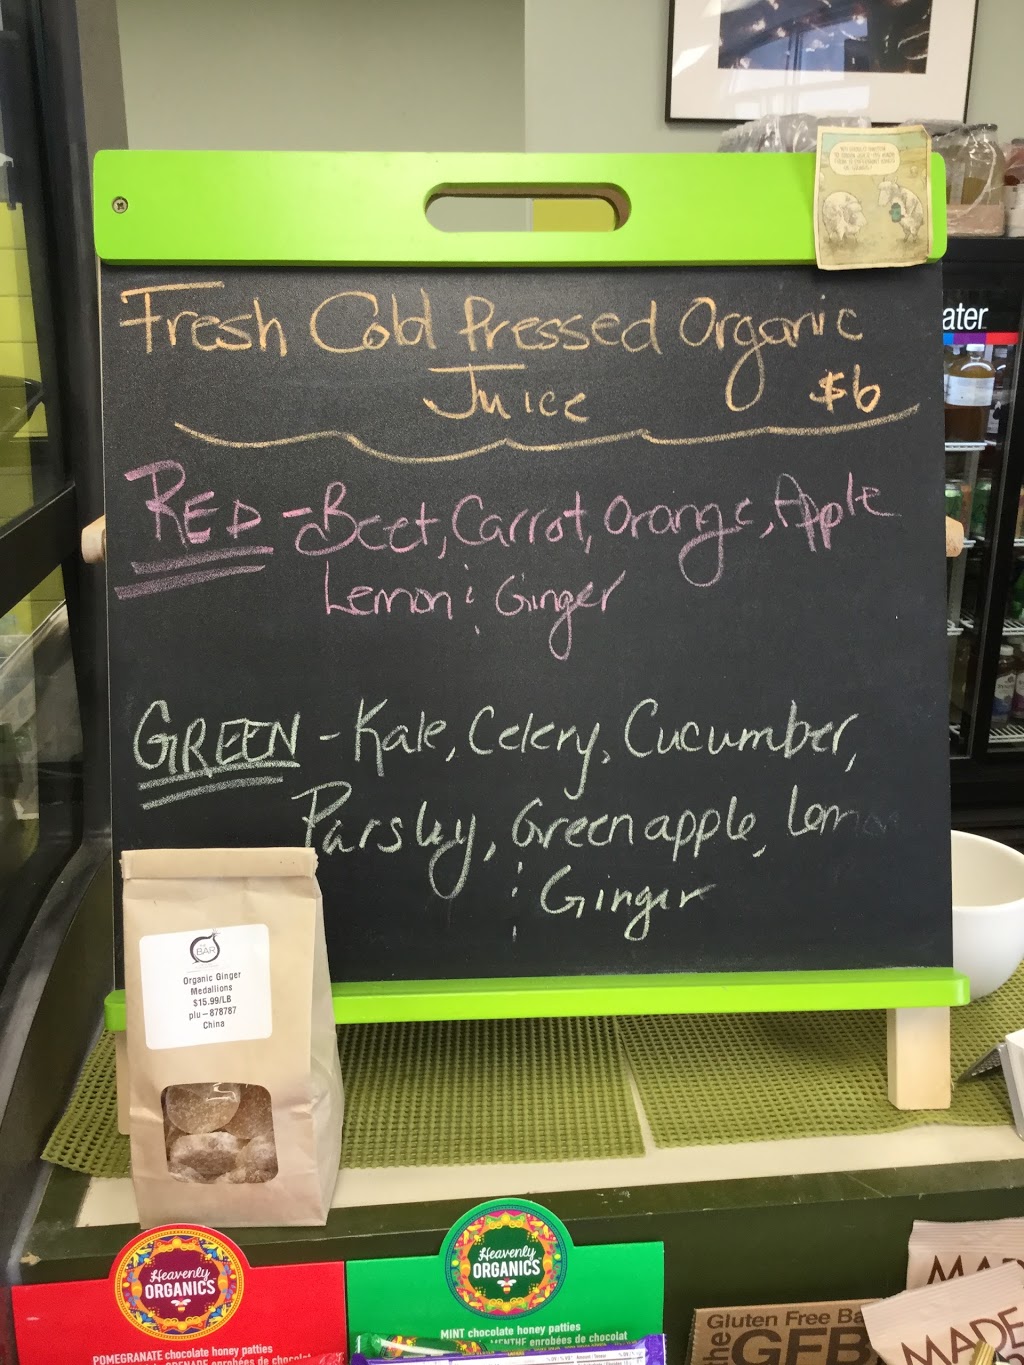 Fresh Cold Pressed Organic
Juice $6
RED - Beet, Carrot, Orange, Apple
Lemon & Ginger
GREEN - Kale, Celery, Cucumber,
Parsley, Green apple, Lemon
& Ginger
ater
BAR
Organic Ginger
Medallions
$15.99/LB
plu-878787
China
Heavenly
ORGANICS
POMEGRANATE chocolate honey patties
Heavenly
ORGANICS
MINT chocolate honey patties
MENTHE enrobées de chocolat
Gluten Free Ba
the GFB
MADE